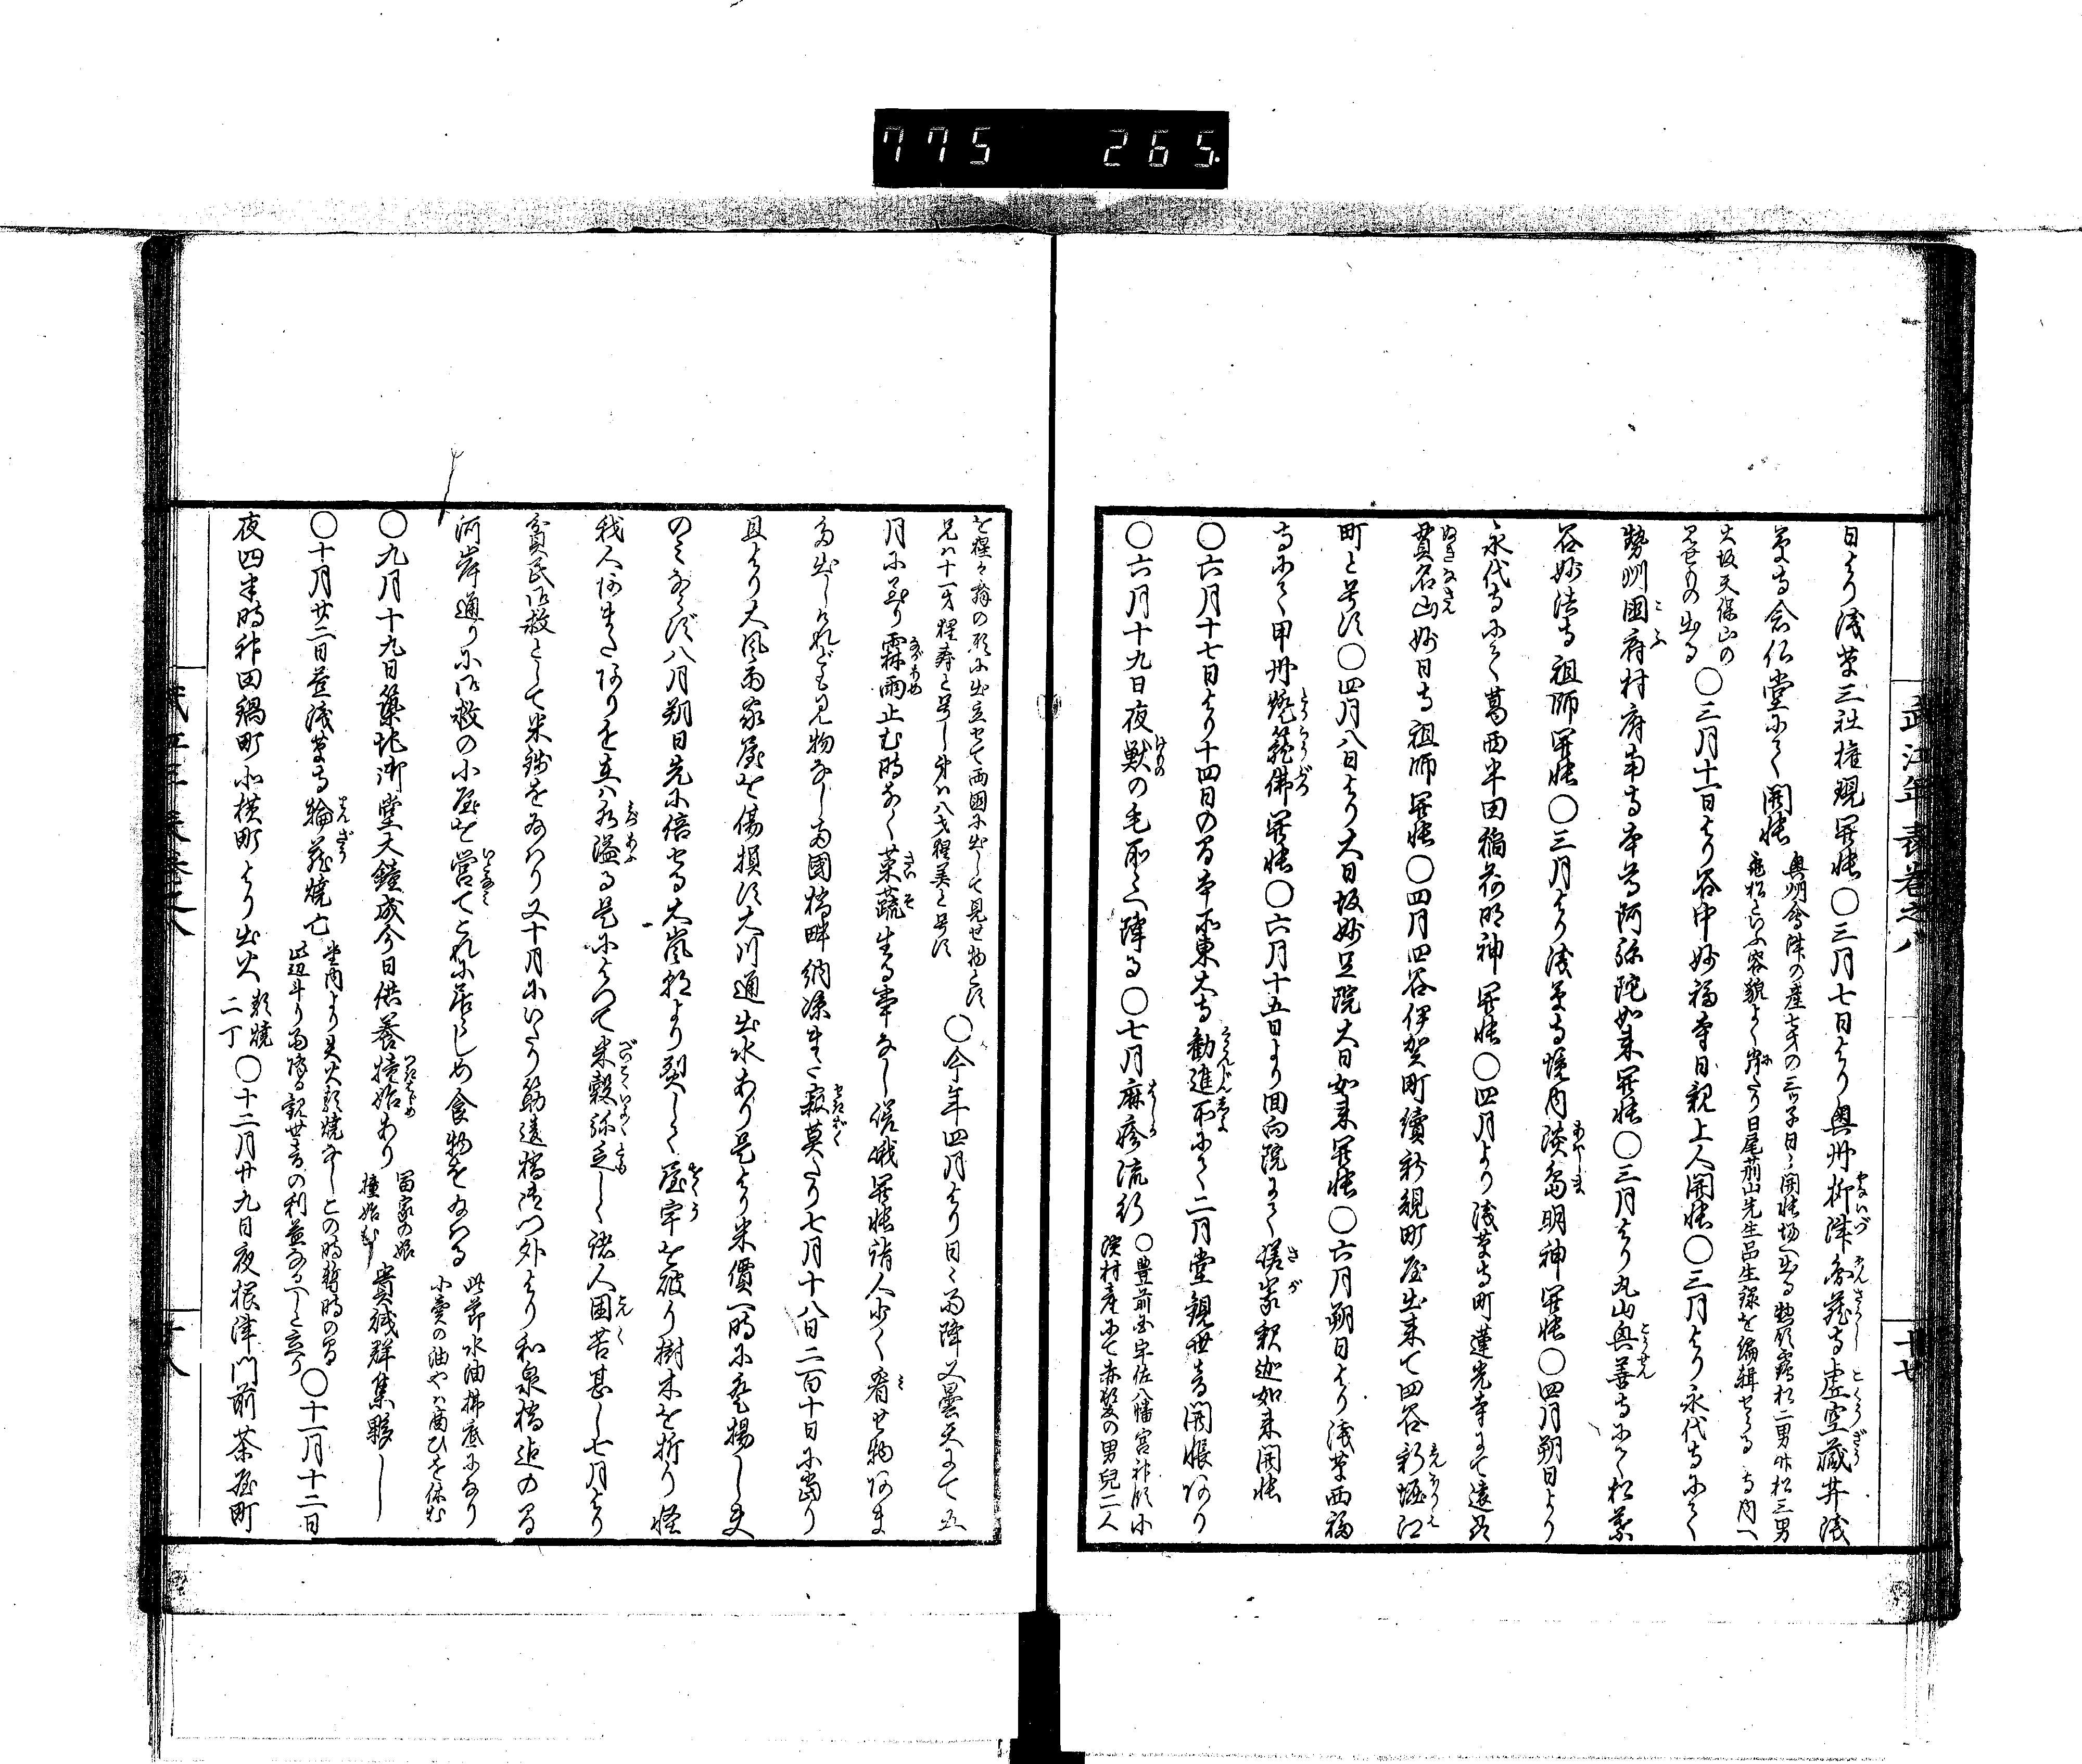 775 265
武江年表巻之八
十七
日より浅草三社権現開帳〇三月七日より奥州柳津圓蔵寺虚空藏井浅
草寺念仏堂にて開帳 奥州會津の産七才の三ツ子日々開帳場へ出る惣領鶴松二男竹松三男
亀松といふ容貌よく肖たり日尾荊山先生品生録を編輯せらる寺内へ
大坂天保山の
見せもの出る〇三月十一日より谷中妙福寺日親上人開帳〇三月より永代寺にて
勢州國府村府南寺本尊阿弥陀如来開帳〇三月より丸山興善寺にて松葉
谷妙法寺祖師開帳〇三月より浅草寺境内淡島明神開帳〇四月朔日より
永代寺にて葛西半田稲荷明神開帳〇四月より浅草寺町蓮光寺にて遠州
貫名山妙日寺祖師開帳〇四月四谷伊賀町續新規町屋出来て四谷新堀江
町と号す〇四月八日より大日坂妙足院大日如来開帳〇六月朔日より浅草西福
寺にて甲州燈籠佛開帳〇六月十五日より回向院にて嵯峨釈迦如来開帳
〇六月十七日より十四日の間本所東大寺勧進所にて二月堂観世音開帳あり
〇六月十九日夜獣の毛所々へ降る〇七月麻疹流行 〇豊前国宇佐八幡宮神領小
濱村産にて赤髪の男児二人
を猩々舞の形に出立せて両國に出して見せ物とす
兄は十一才猩壽と号し弟は八才猩美と号す〇今年四月より日々雨降又曇天にて五
月に至り霖雨止む時なく菜蔬生る事なし嵯峨開帳詣人少く看せ物あま
た出しけれども見物なし両國橋畔納凉まで寂莫たり七月十八日二百十日に當り
且より大風雨家屋を傷損す大川通出水あり是より米價一時に登揚し夫
のミならず八月朔日先に倍せる大嵐朝より烈しく屋宇を破り樹木を折り怪
我人あまたありを共水溢る是によつて米穀弥乏しく諸人困苦甚し七月より
貧民御救として米銭を給ハり又十月にいたり筋違橋御門外より和泉橋迄の間
河岸通りに御救の小屋を営てこれに居らしめ食物を給ハる 此節水油拂底になり
小賣の油や八商ひを休む
〇九月十九日築地御堂大鐘成今日供養撞始あり 冨家の娘
撞始む 貴賎群集夥し
〇十月廿二日暮浅草寺輪蔵焼亡 堂内より出火類焼なしこの時暫時の間
此辺斗り雨降る観世音の利益なるべしと云り〇十一月十二日
夜四半時神田鍋町北横町より出火 類焼
二丁 〇十二月廿九日夜根津門前茶屋町
武江年表巻之八
十八